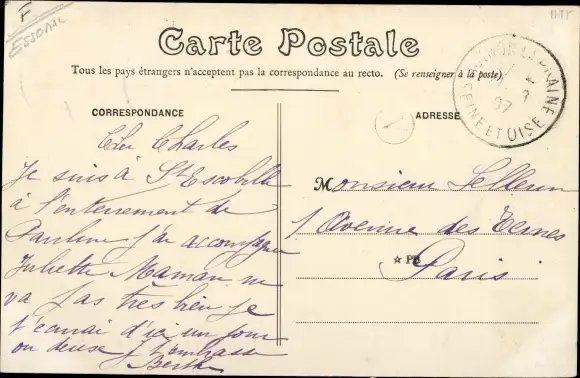 F
ESSONNE
Carte Postale
Tous les pays étrangers n'acceptent pas la correspondance au recto. (Se renseigner à la poste)
CORRESPONDANCE
ADRESSE
LA PRAINE
07
SEINE ET OISE
Cher Charles
Je suis à St Escobille
à l'enterrement de
Pauline j'ai accompagné
Juliette Maman ne
va pas très bien je
t'écrirai d'ici un jour
ou deux je t'embrasse
Berthe
Monsieur
1 Avenue des Ternes
Paris